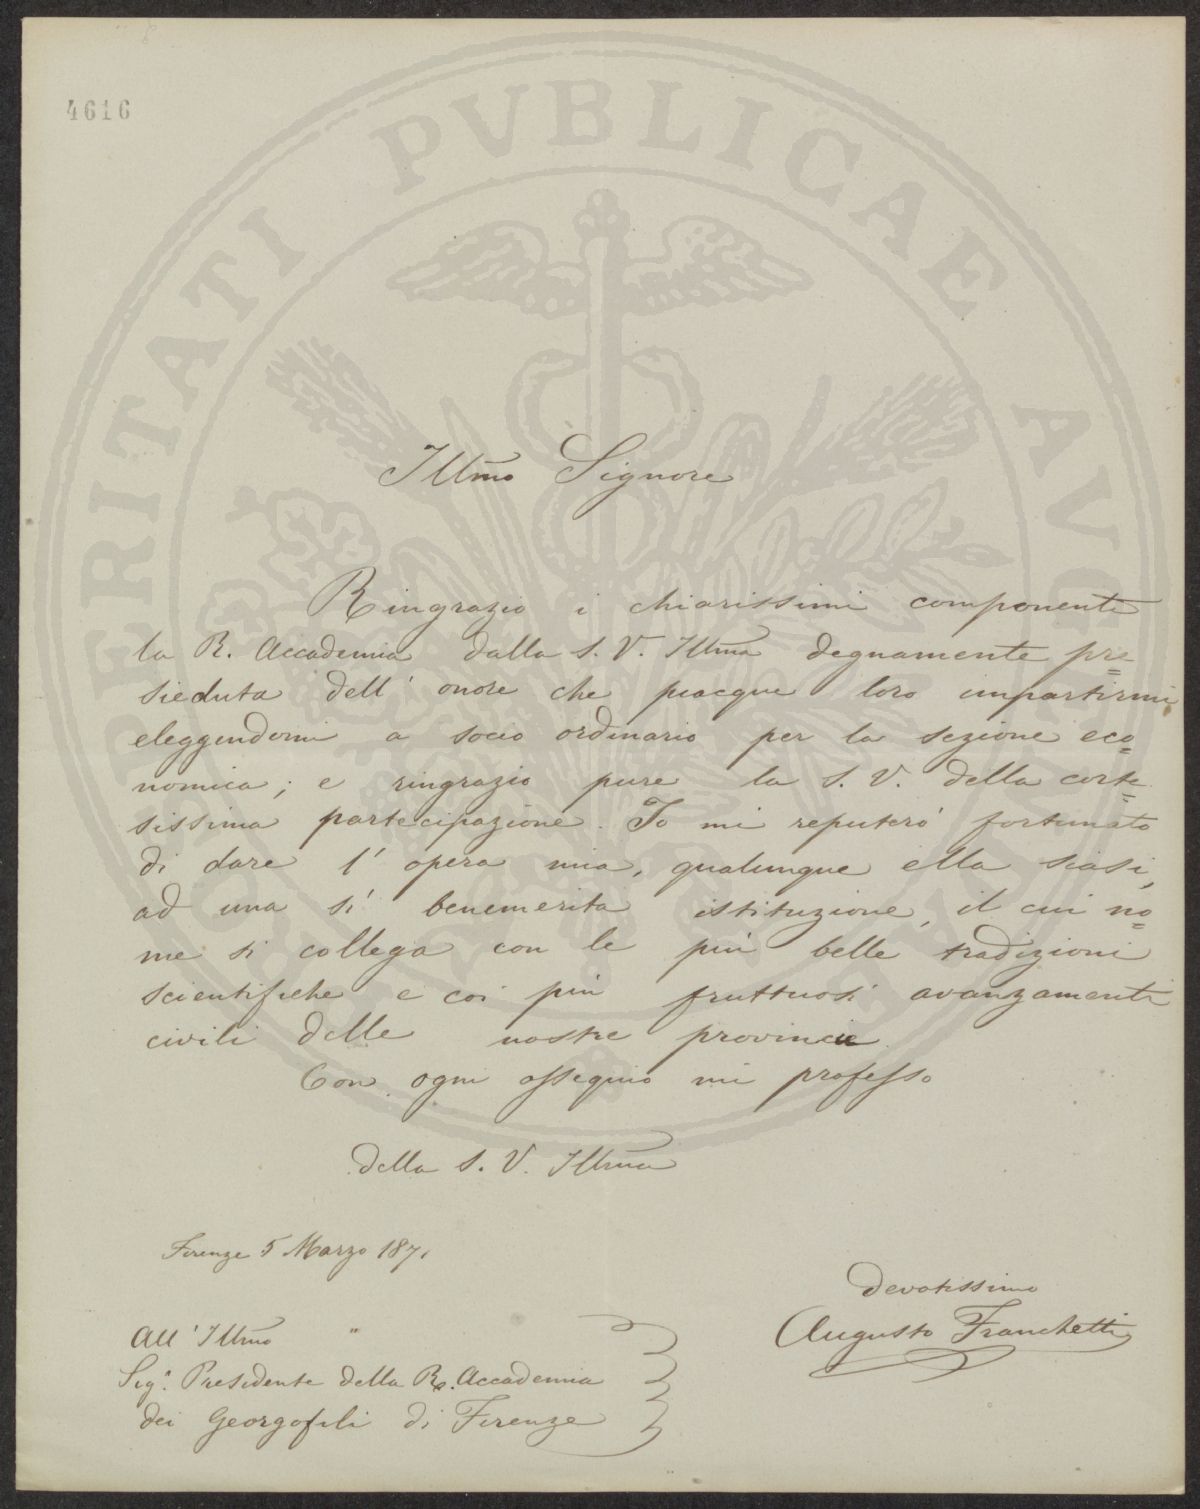 4616
PROSPERITATI PVBLICAE AVGENDAE
Illmo Signore
Ringrazio i chiarissimi componenti
la R. Accademia dalla S. V. Illma degnamente pre=
sieduta dell' onore che piacque loro impartirmi
eleggendomi a socio ordinario per la sezione eco=
nomica; e ringrazio pure la S. V. della corte=
sissima partecipazione. Io mi reputerò fortunato
di dare l' opera mia, qualunque ella siasi,
ad una sì benemerita istituzione, il cui no=
me si collega con le più belle tradizioni
scientifiche e coi più fruttuosi avanzamenti
civili delle nostre provincie.
Con ogni ossequio mi professo
della S. V. Illma
Firenze 5 Marzo 1871
devotissimo
Augusto Franchetti
All' Illmo
Sigr. Presidente della R. Accademia
dei Georgofili di Firenze